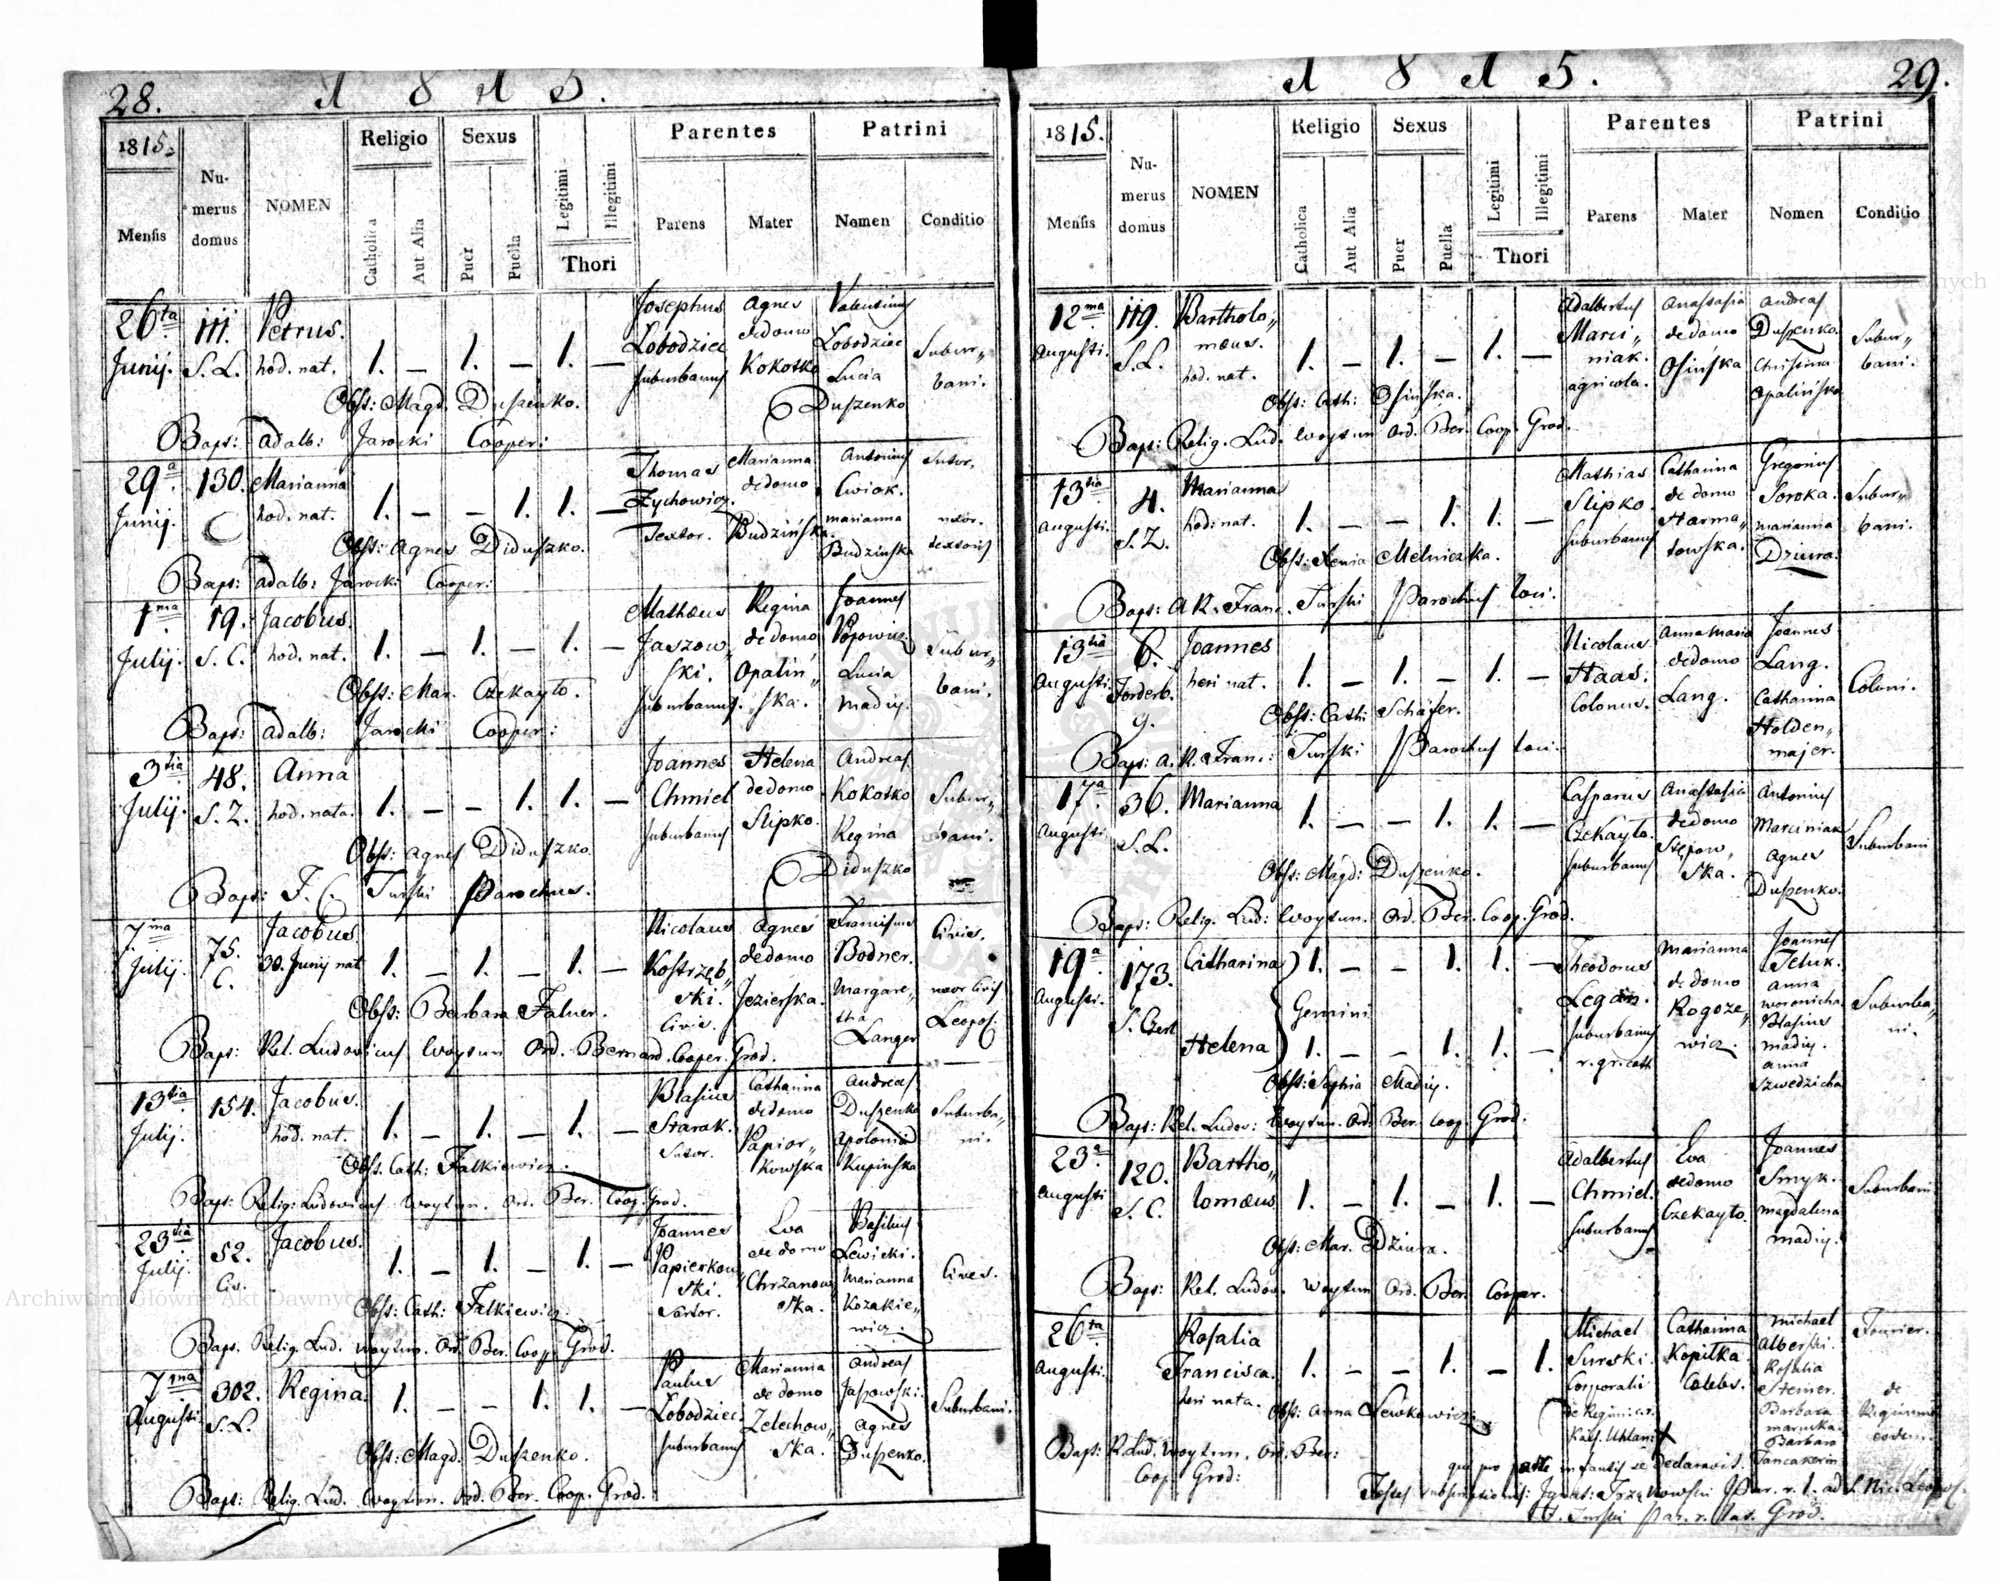 28. 1 8 1 5.
1815. Numerus domus NOMEN Religio Sexus Parentes Patrini
Mensis Catholica Aut Alia Puer Puella Legitimi Illegitimi Thori Parens Mater Nomen Conditio
26ta Junij. 111. S. L. Petrus. hod. nat. 1. — 1. — 1. — Josephus Lobodziec suburbanus Agnes de domo Kokotko Valentinus Lobodziec Lucia Duszenko Subur„ bani.
Obst: Magd. Duszenko.
Bapt: Adalb: Jarocki Cooper:
29a Junij. 130. C Marianna hod. nat. 1. — — 1. 1. — Thomas Zychowicz. Textor. Marianna de domo Budzińska. Antonius Cwiok. Marianna Budzińska Sutor. uxor. textoris
Obst: Agnes Diduszko.
Bapt: Adalb: Jarocki Cooper:
1ma Julij. 19. S. C. Jacobus. hod. nat. 1. — 1. — 1. — Mathæus Jaszow„ ski. suburbanus. Regina de domo Opaliń„ ska. Joannes Popowicz Lucia Madiy. Subur„ bani.
Obst: Mar. Czekayło.
Bapt: Adalb: Jarocki Cooper:
3tia Julij. 48. S. Z. Anna hod. nata. 1. — — 1. 1. — Joannes Chmiel suburbanus Helena de domo Slipko. Andreas Kokotko Regina Diduszko Subur„ bani.
Obst: Agnes Diduszko.
Bapt: F. C. Turski Parochus.
7ma Julij. 75. C. Jacobus 30. Junij nat 1. — 1. — 1. — Nicolaus Kostrzęb„ ski. Civis. Agnes de domo Jezierska. Franciscus Bodner. Margare„ tha Langer Civis. uxor Civis Leopol:
Obst: Barbara Falner.
Bapt: Rel. Ludovicus Woytun Ord. Bernard. Cooper. Grod.
13tia Julij. 154. Jacobus. hod. nat. 1. — 1. — 1. — Blasius Starak. Sutor. Catharina de domo Papior„ kowska Andreas Duszenko Apolonia Kupińska Suburba„ ni.
Obst. Cath: Falkiewicz.
Bapt: Relig: Ludovicus Woytun. Ord. Ber. Coop. Grod.
23tia Julij. 52. Civ. Jacobus. 1. — 1. — 1. — Joannes Papierkow„ ski. Sartor. Eva de domo Chrzanow„ ska. Basilius Lewicki. Marianna Kozakie„ wicz. Cives.
Obst: Cath: Falkiewicz.
Bapt. Relig. Lud. Woytun. Ord. Ber. Coop. Grod.
7ma Augusti. 302. S. L. Regina. 1. — — 1. 1. — Paulus Lobodziec. suburbanus Marianna de domo Zelechow„ ska. Andreas Jaszowski. Agnes Duszenko. Suburbani.
Obst: Magd. Duszenko.
Bapt: Relig. Lud. Woytun. Ord. Ber. Coop. Grod.
1 8 1 5. 29.
1815. Numerus domus NOMEN Religio Sexus Parentes Patrini
Mensis Catholica Aut Alia Puer Puella Legitimi Illegitimi Thori Parens Mater Nomen Conditio
12ma Augusti. 119. S. L. Bartholo„ mæus. hod. nat. 1. — 1. — 1. — Adalbertus Marci„ niak. agricola. Anastasia de domo Osińska Andreas Duszenko. Christina Opalińska Subur„ bani.
Obst: Cath: Osińska.
Bapt: Relig. Lud. Woytun Ord. Ber. Coop. Grod.
13tia Augusti. 4. S. Z. Marianna hod: nat. 1. — — 1. 1. — Mathias Slipko. suburbanus Catharina de domo Harma„ towska. Gregorius Soroka. Marianna Dziura. Subur„ bani.
Obst: Xenia Melniczka.
Bapt: A. R. Franc. Turski Parochus loci.
13tia Augusti. 6. Joannes heri nat. 1. — 1. — 1. — Nicolaus Haas. Colonus. Anna Maria de domo Lang. Joannes Lang. Catharina Holden„ majer. Coloni.
Obst: Cath: Schäfer.
Bapt: A. R. Franc: Turski Parochus loci.
17a Augusti. 36. S. L. Marianna 1. — — 1. 1. — Casparus Czekayło. suburbanus Anastasia de domo Stępow„ ska. Antonius Marciniak Agnes Duszenko. Suburbani
Obst: Magd: Duszenko.
Bapt: Relig. Lud: Woytun. Ord. Ber. Coop. Grod.
19a Augusti. 173. S. Czerl Catharina Gemini Helena 1. — — 1. 1. — 1. — — 1. 1. — Theodorus Legan. suburbanus r. gr. cath Marianna de domo Rogoze„ wicz. Joannes Teluk. Anna Woronicha Blasius Madiy. Anna Szwedzicha Suburba„ ni.
Obst: Sophia Madiy.
Bapt: Rel. Ludov: Woytun. Ord. Ber. Coop. Grod:
23a Augusti 120. S. C. Bartho„ lomæus 1. — 1. — 1. — Adalbertus Chmiel. suburbanus Eva de domo Czekayło. Joannes Smyk. Magdalena Madiy. Suburbani
Obst: Mar. Dziura.
Bapt: Rel. Ludov. Woytun Ord. Ber. Cooper.
26ta Augusti. Rosalia Francisca. heri nata. 1. — — 1. — 1. Michael Surski. Corporalis de Regim: Cæs. Uhlan: Catharina Kopitka Cælebs. Michael Alberski. Rosalia Steiner. Barbara Barbara Jancakerin Fourier. de Regimine eodem.
Obst: Anna Lewkowicz.
Bapt: R. Lud. Woytun. Ord. Ber: Coop. Grod:
qui pro patre infantis se declaravit.
Testes subscriptionis: Par. r. l. ad S. Nic. Leopol.
Turski Par. r. lat. Grod.
Archiwum Główne Akt Dawnych
Archiwum Główne Akt Dawnych